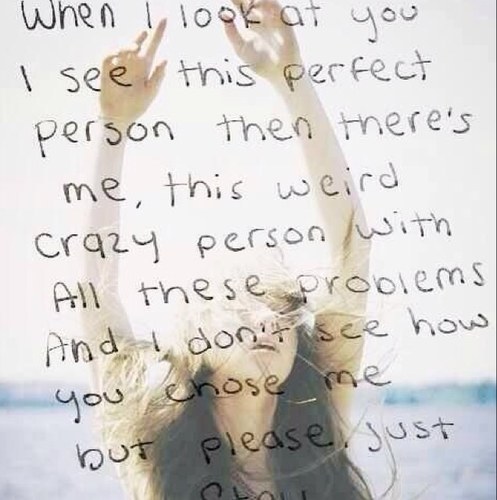 When I look at you
I see this perfect
person then there's
me, this weird
crazy person with
All these problems
And I don't see how
you chose me
but please, just
Stay